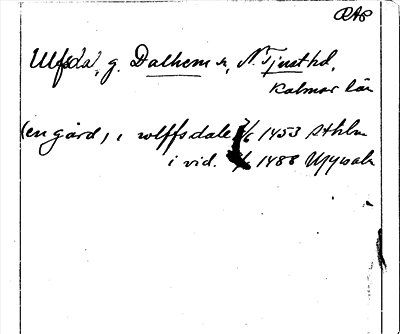 RAP
Ulfsdal, g. Dalhem s., N. Tjust hd,
Kalmar län
(en gård), i wlffsdale 7/6 1453 Sthlm
i vid. 1488